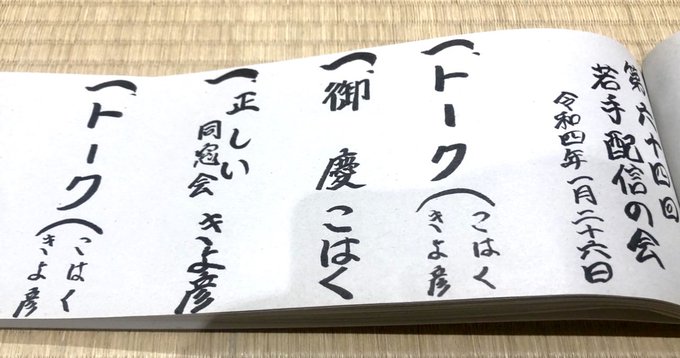 第六十四回
若手配信の会
令和四年一月二十六日
一、トーク(こはく
きよ彦
一、御慶 こはく
一、正しい
同窓会 きよ彦
一、トーク(こはく
きよ彦